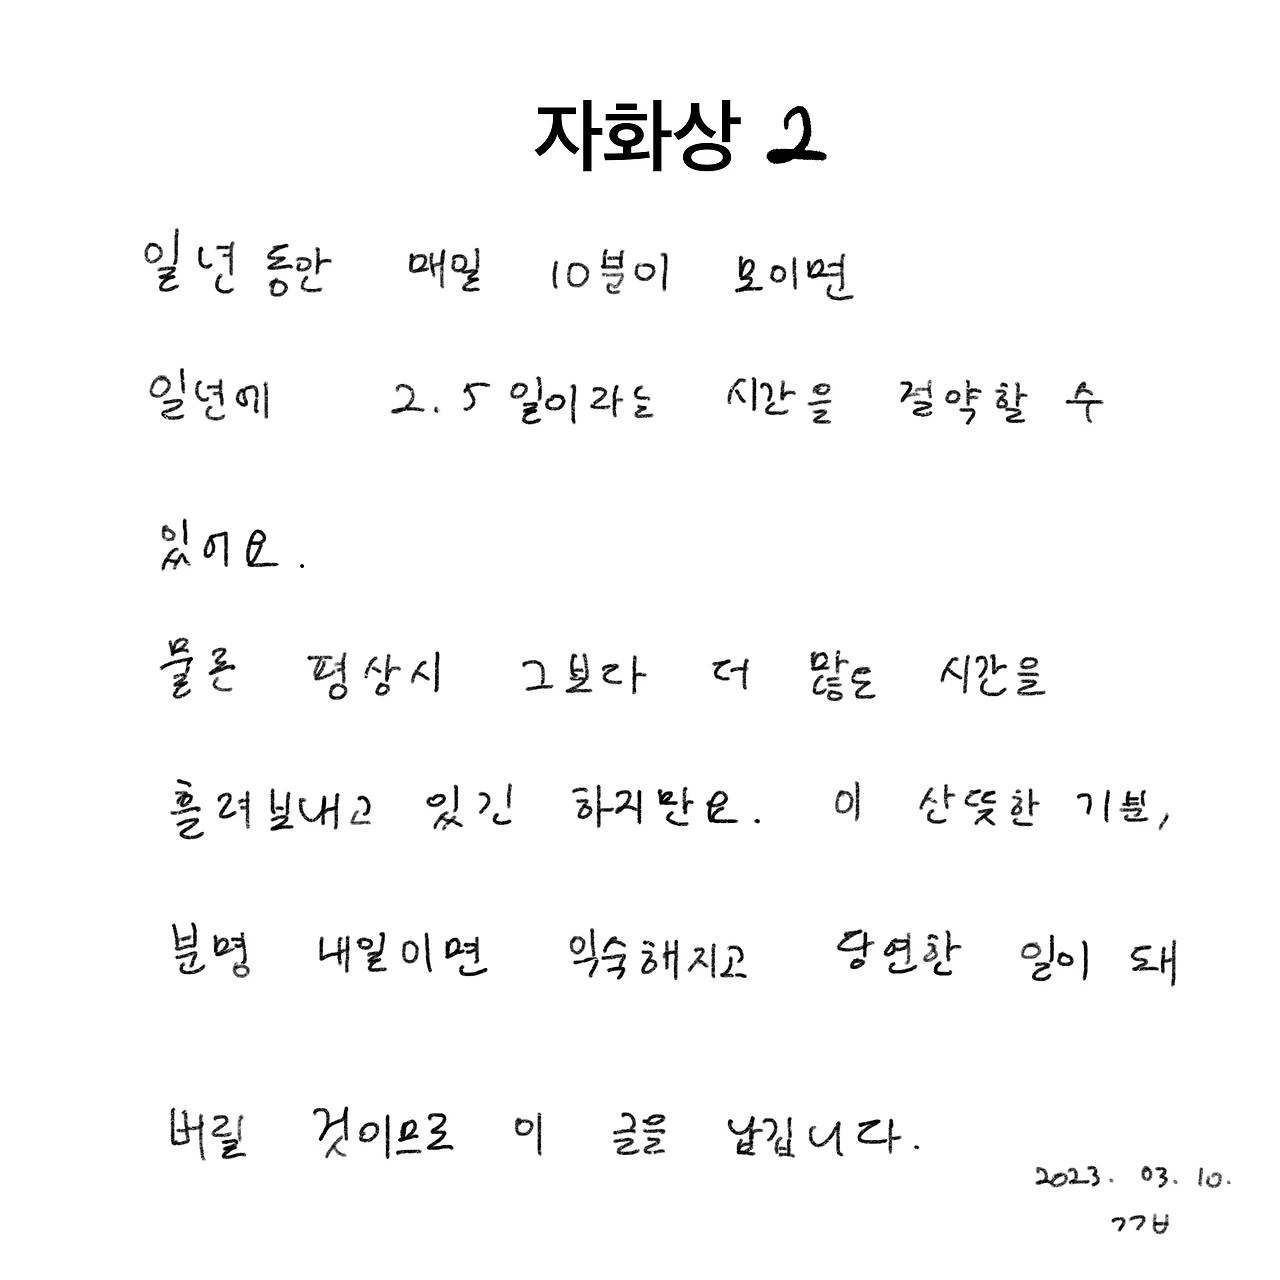 자화상 2
일년동안 매일 10분이 모이면
일년에 2.5일이라는 시간을 절약할 수
있어요.
물론 평상시 그보다 더 많은 시간을
흘려보내고 있긴 하지만요. 이 산뜻한 기분,
분명 내일이면 익숙해지고 당연한 일이 돼
버릴 것이므로 이 글을 남깁니다.
2023. 03. 10.
ㄱㄱㅂ